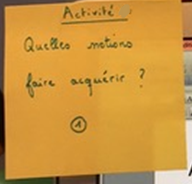 Activité :
Quelles notions
faire acquérir ?
1